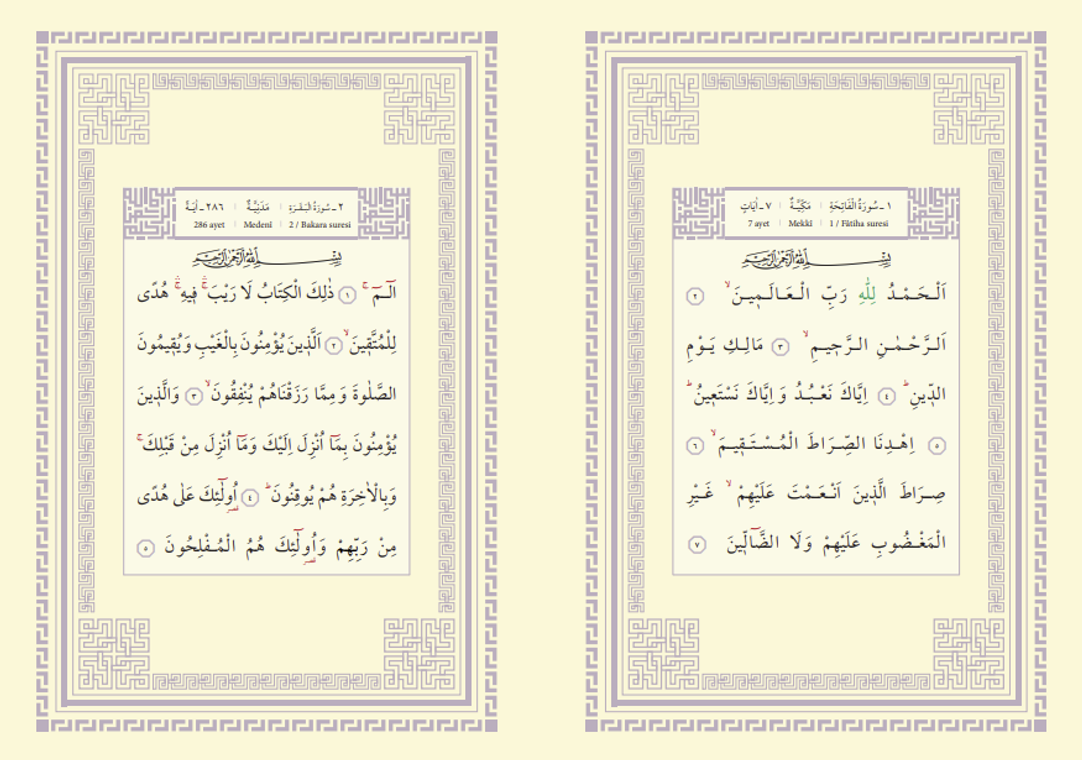 ١ ـ سُورَةُ الْفَاتِحَةِ | مَكِّيَّةٌ | ٧ ـ اٰيَاتٍ
1 / Fâtiha suresi | Mekkî | 7 ayet
بِسْمِ اللّٰهِ الرَّحْمٰنِ الرَّحِيمِ
اَلْحَمْدُ لِلّٰهِ رَبِّ الْعَالَمِينَۙ ٢
اَلرَّحْمٰنِ الرَّحِيمِۙ ٣ مَالِكِ يَوْمِ
الدِّينِۜ ٤ اِيَّاكَ نَعْبُدُ وَاِيَّاكَ نَسْتَعِينُۜ
٥ اِهْدِنَا الصِّرَاطَ الْمُسْتَقِيمَۙ ٦
صِرَاطَ الَّذِينَ اَنْعَمْتَ عَلَيْهِمْۙ غَيْرِ
الْمَغْضُوبِ عَلَيْهِمْ وَلَا الضَّٓالِّينَ ٧
٢ ـ سُورَةُ الْبَقَرَةِ | مَدَنِيَّةٌ | ٢٨٦ ـ اٰيَةً
2 / Bakara suresi | Medenî | 286 ayet
بِسْمِ اللّٰهِ الرَّحْمٰنِ الرَّحِيمِ
الٓمٓۚ ١ ذٰلِكَ الْكِتَابُ لَا رَيْبَۚۛ فِيهِۚۛ هُدًى
لِلْمُتَّقِينَۙ ٢ اَلَّذِينَ يُؤْمِنُونَ بِالْغَيْبِ وَيُقِيمُونَ
الصَّلٰوةَ وَمِمَّا رَزَقْنَاهُمْ يُنْفِقُونَۙ ٣ وَالَّذِينَ
يُؤْمِنُونَ بِمَٓا اُنْزِلَ اِلَيْكَ وَمَٓا اُنْزِلَ مِنْ قَبْلِكَۚ
وَبِالْاٰخِرَةِ هُمْ يُوقِنُونَۜ ٤ اُو۬لٰٓئِكَ عَلٰى هُدًى
مِنْ رَبِّهِمْ وَاُو۬لٰٓئِكَ هُمُ الْمُفْلِحُونَ ٥